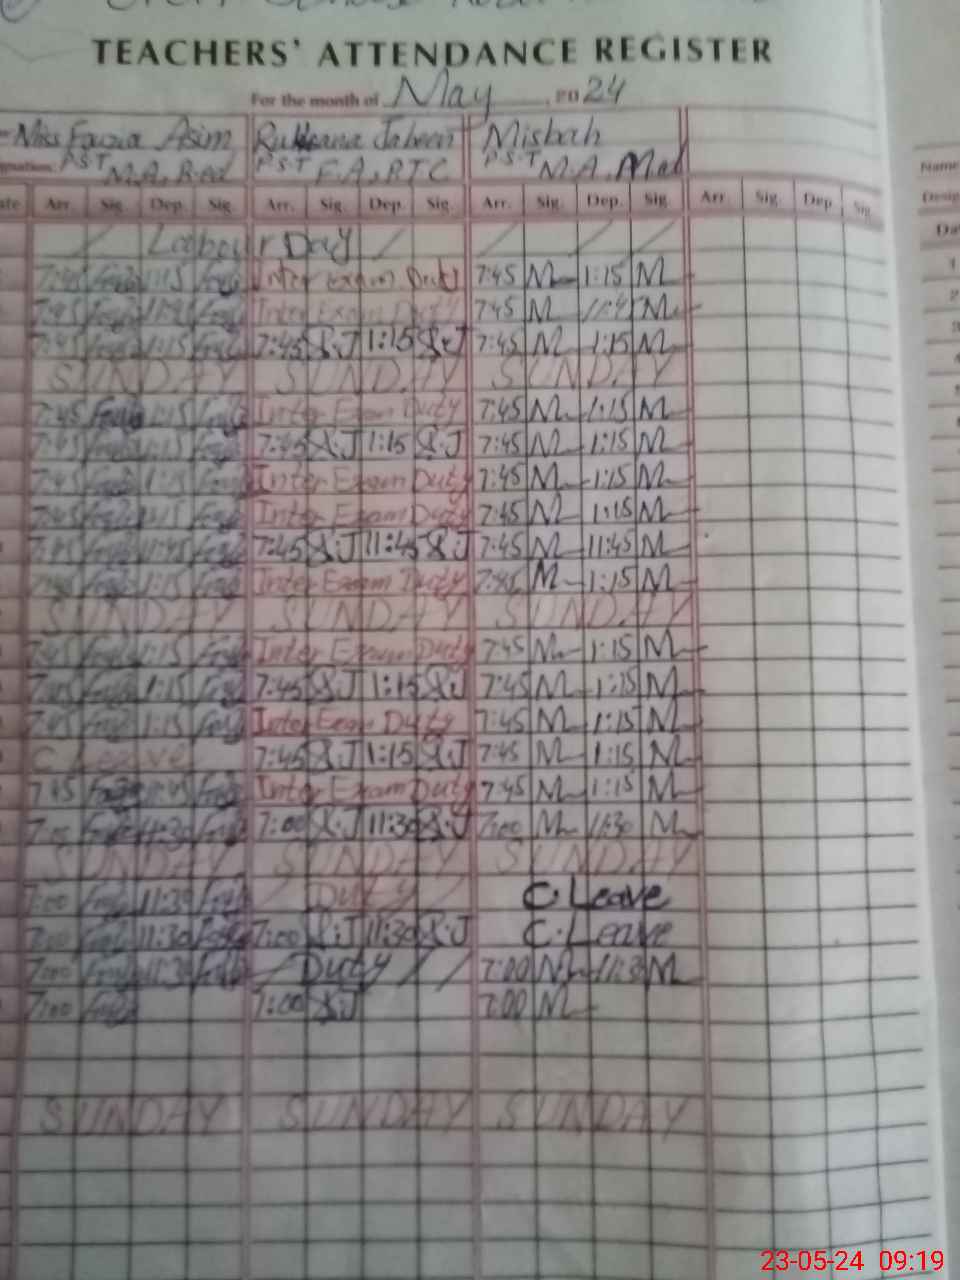 TEACHERS' ATTENDANCE REGISTER
For the month of May, 2024
Miss Fauzia Asim Rukhsana Jabeen Misbah
P.S.T M.A, B.ed P.S.T F.A, PTC P.S.T M.A, M.ed
Arr. Sig. Dep. Sig. Arr. Sig. Dep. Sig. Arr. Sig. Dep. Sig. Arr. Sig. Dep. Sig. Name
Labour Day
7:45 1:15 Inter exam Duty 7:45 M 1:15 M
7:45 11:45 Inter Exam Duty 7:45 M M
7:45 1:15 7:45 R.J 1:15 R.J 7:45 M 1:15 M
SUNDAY SUNDAY SUNDAY
7:45 1:15 Inter Exam Duty 7:45 M 1:15 M
7:45 1:15 7:45 R.J 1:15 R.J 7:45 M 1:15 M
7:45 1:15 Inter Exam Duty 7:45 M 1:15 M
7:45 1:15 Inter Exam Duty 7:45 M 1:15 M
7:45 11:45 7:45 R.J 11:45 R.J 7:45 M 11:45 M
7:45 1:15 Inter Exam Duty 7:45 M 1:15 M
SUNDAY SUNDAY SUNDAY
7:45 1:15 Inter Exam Duty 7:45 M 1:15 M
7:45 1:15 7:45 R.J 1:15 R.J 7:45 M 1:15 M
7:45 1:15 Inter Exam Duty 7:45 M 1:15 M
C Leave 7:45 R.J 1:15 R.J 7:45 M 1:15 M
7:45 Inter Exam Duty 7:45 M 1:15 M
7:00 11:30 7:00 R.J 11:30 R.J 7:00 M 11:30 M
SUNDAY SUNDAY SUNDAY
7:00 11:30 Duty C. Leave
7:00 11:30 7:00 R.J 11:30 R.J C. Leave
7:00 11:30 Duty 7:00 M 11:3 M
7:00 7:00 R.J 7:00 M
SUNDAY SUNDAY SUNDAY
23-05-24 09:19